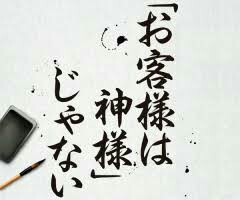 「お客様は
神様」
じゃない